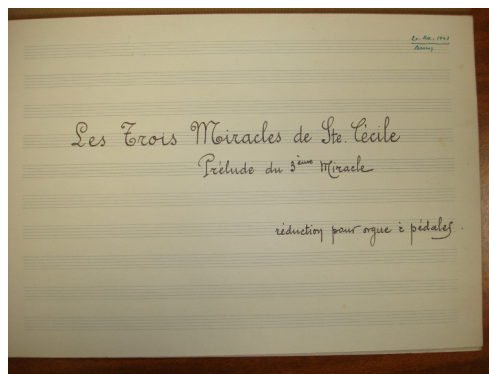 Les Trois Miracles de Ste. Cécile
Prélude du 3ème Miracle
réduction pour orgue à pédales.